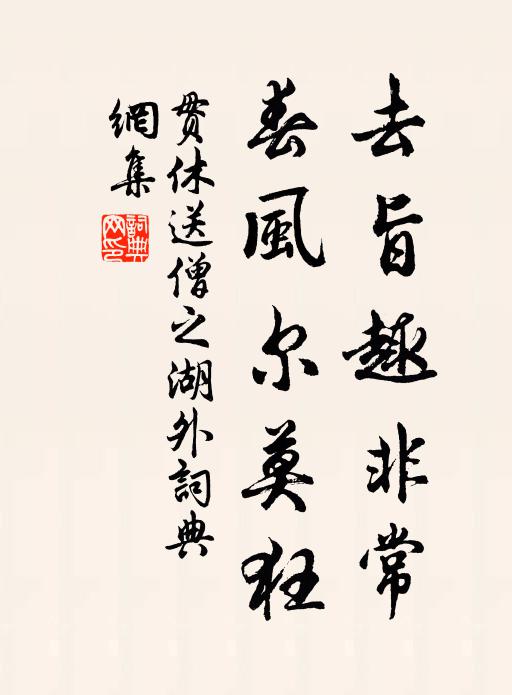 去旨趣非常
春風尔莫狂
貫休送僧之湖外詞典
網集
詞典網印